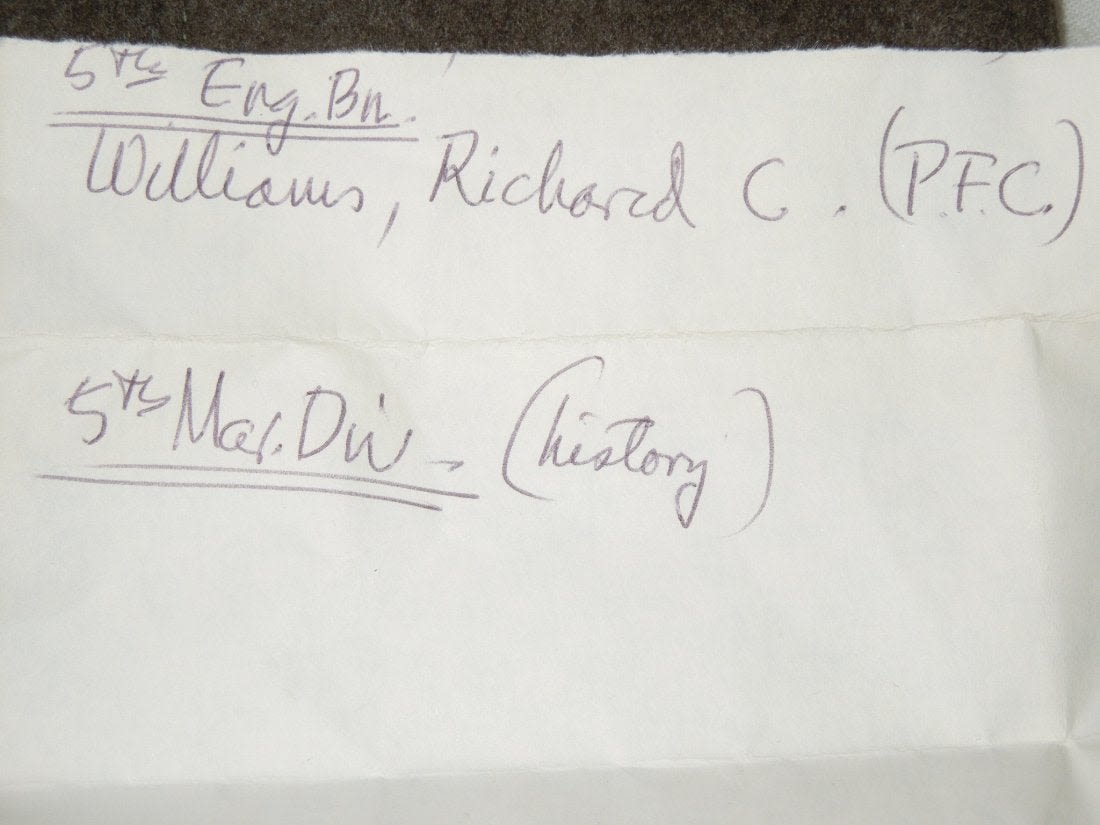 5th Eng. Bn.
Williams, Richard C. (P.F.C.)
5th Mar. Div. (history)